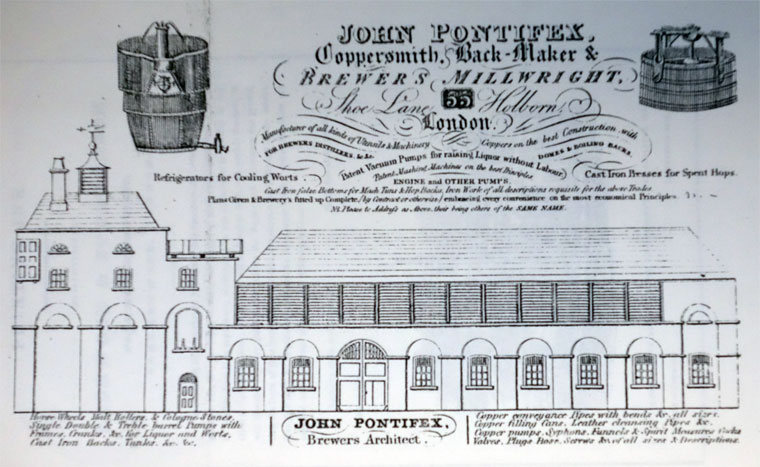 JOHN PONTIFEX,
Coppersmith, Back-Maker &
BREWER'S MILLWRIGHT,
Shoe Lane 55 Holborn,
London.
Manufacturer of all kinds of Utensils & Machinery
Coppers on the best Construction with
FOR BREWERS DISTILLERS, &c.
DOMES & BOILING BACKS.
Patent Vacuum Pumps for raising Liquor without Labour
Patent Mashing Machines on the best Principles
ENGINE and OTHER PUMPS.
Refrigerators for Cooling Worts.
Cast Iron Presses for Spent Hops.
Cast Iron false Bottoms for Mash Tuns & Hop Backs, Iron Work of all descriptions requisite for the above Trades
Plans Given & Brewery's fitted up Complete, (by Contract or otherwise) embracing every convenience on the most economical Principles.
Nt. Please to Address as Above, their being others of the SAME NAME.
Horse Wheels Malt Rollers, & Cologne Stones,
Single Double & Treble barrel Pumps with
Frames, Cranks, &c. for Liquor and Worts,
Cast Iron Backs, Tanks, &c. &c.
JOHN PONTIFEX,
Brewers Architect.
Copper conveyance Pipes with bends &c. all sizes.
Copper filling Cans, Leather cleansing Pipes &c.
Copper pumps, Syphons, Funnels & Spirit Measures Cocks
Valves, Plugs Hose, Screws &c. of all sizes & Descriptions.